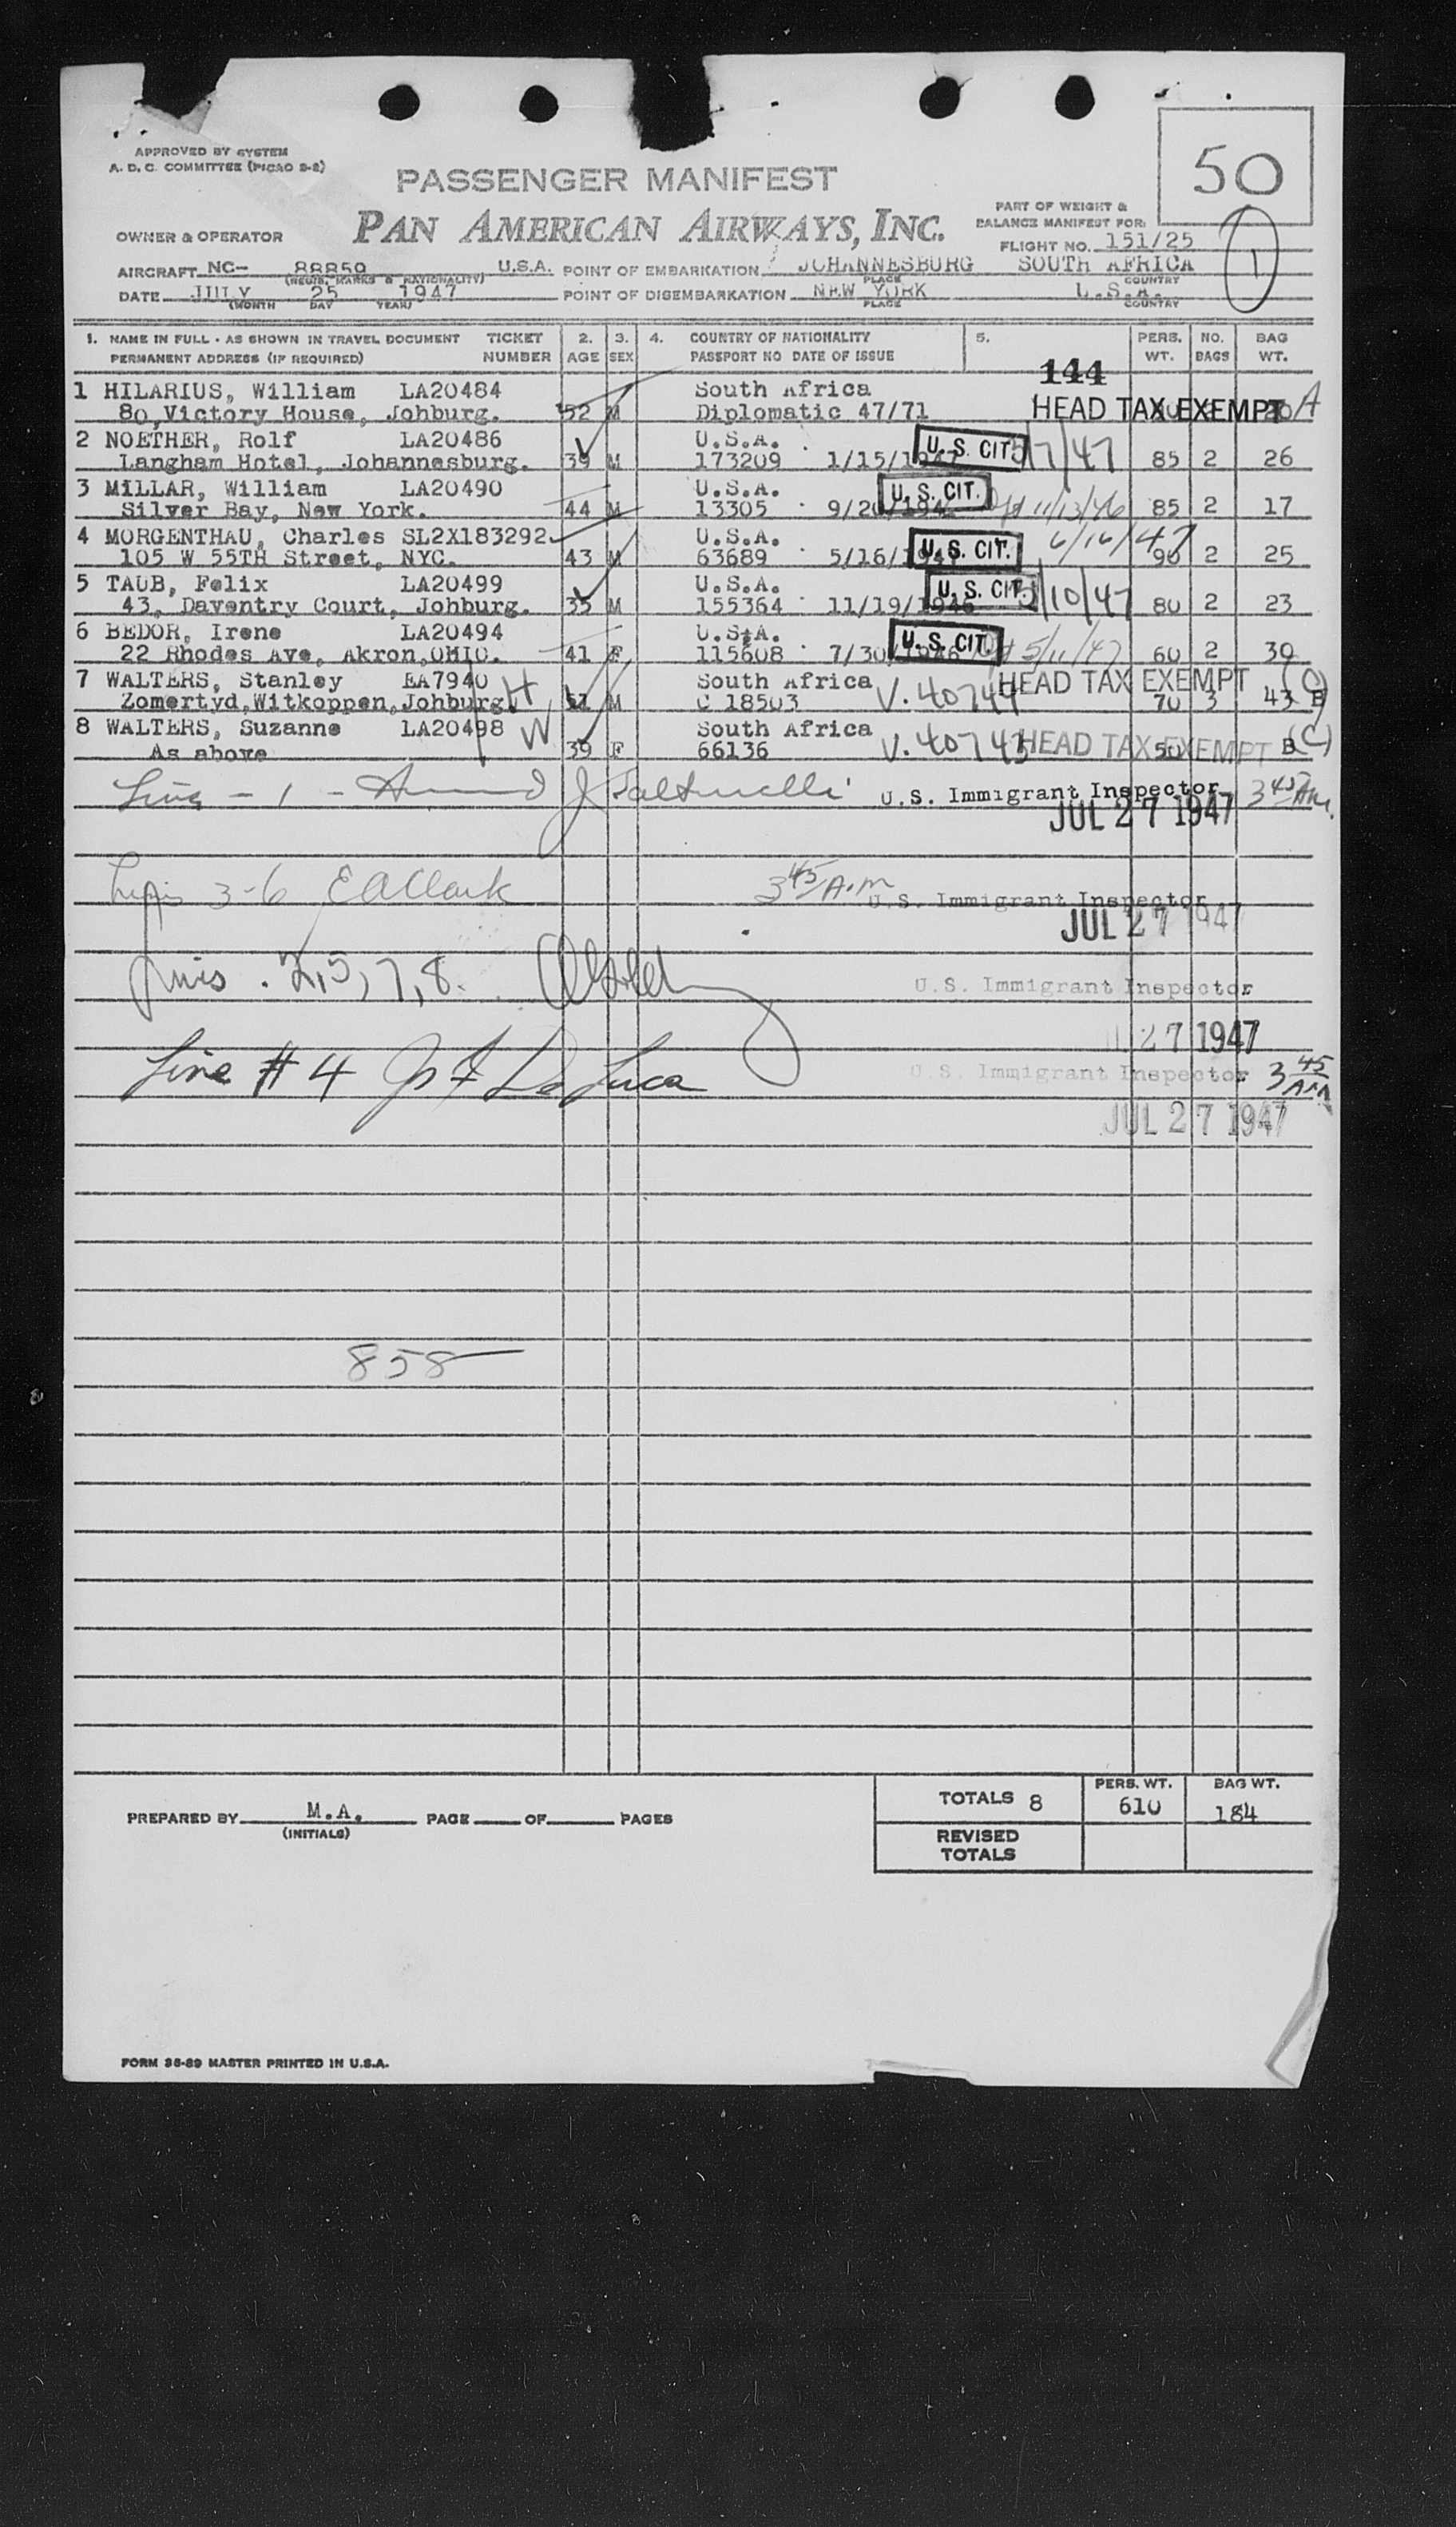 50
APPROVED BY SYSTEM
A. D. C. COMMITTEE (PICAO 2-2)
PASSENGER MANIFEST
PART OF WEIGHT &
BALANCE MANIFEST FOR:
OWNER & OPERATOR PAN AMERICAN AIRWAYS, INC.
FLIGHT NO. 151/25
1
AIRCRAFT NC- 88859 U.S.A. POINT OF EMBARKATION JOHANNESBURG SOUTH AFRICA
(REGIS. MARKS & NATIONALITY) PLACE COUNTRY
DATE JULY 25 1947 POINT OF DISEMBARKATION NEW YORK U.S.A.
(MONTH DAY YEAR) PLACE COUNTRY
1. NAME IN FULL - AS SHOWN IN TRAVEL DOCUMENT TICKET 2. 3. 4. COUNTRY OF NATIONALITY 5. PERS. NO. BAG
PERMANENT ADDRESS (IF REQUIRED) NUMBER AGE SEX PASSPORT NO DATE OF ISSUE WT. BAGS WT.
144
1 HILARIUS, William LA20484 South Africa
80, Victory House, Johburg. 52 M Diplomatic 47/71 HEAD TAX EXEMPT A
2 NOETHER, Rolf LA20486 U.S.A. U. S. CIT. 7/47
Langham Hotel, Johannesburg. 39 M 173209 1/15/1947 85 2 26
3 MILLAR, William LA20490 U.S.A. U. S. CIT.
Silver Bay, New York. 44 M 13305 9/20/194 11/13/46 85 2 17
4 MORGENTHAU, Charles SL2X183292 U.S.A. U. S. CIT. 6/16/47
105 W 55TH Street, NYC. 43 M 63689 5/16/194 90 2 25
5 TAUB, Felix LA20499 U.S.A. U. S. CIT. /10/47
43, Daventry Court, Johburg. 35 M 155364 11/19/1946 80 2 23
6 BEDOR, Irene LA20494 U.S.A. U. S. CIT.
22 Rhodes Ave, Akron,OHIO. 41 F 115608 7/30/1946 5/11/47 60 2 30
7 WALTERS, Stanley EA7940 H South Africa V. 40744 HEAD TAX EXEMPT (C)
Zomertyd,Witkoppen,Johburg. 51 M C 18503 70 3 43 B
8 WALTERS, Suzanne LA20498 W South Africa V. 40743 HEAD TAX EXEMPT B (C)
As above 39 F 66136 50
Line - 1 - U.S. Immigrant Inspector 3 45 AM.
JUL 27 1947
Lines 3-6 E A Clark 3 45 A.M U.S. Immigrant Inspector
JUL 27 1947
Lines . 2,5,7,8. U.S. Immigrant Inspector
27 1947
Line # 4 De Luca U.S. Immigrant Inspector 3 45 AM
JUL 27 1947
858
TOTALS 8 PERS. WT. 610 BAG WT. 184
PREPARED BY M.A. PAGE OF PAGES
(INITIALS)
REVISED
TOTALS
FORM 36-89 MASTER PRINTED IN U.S.A.